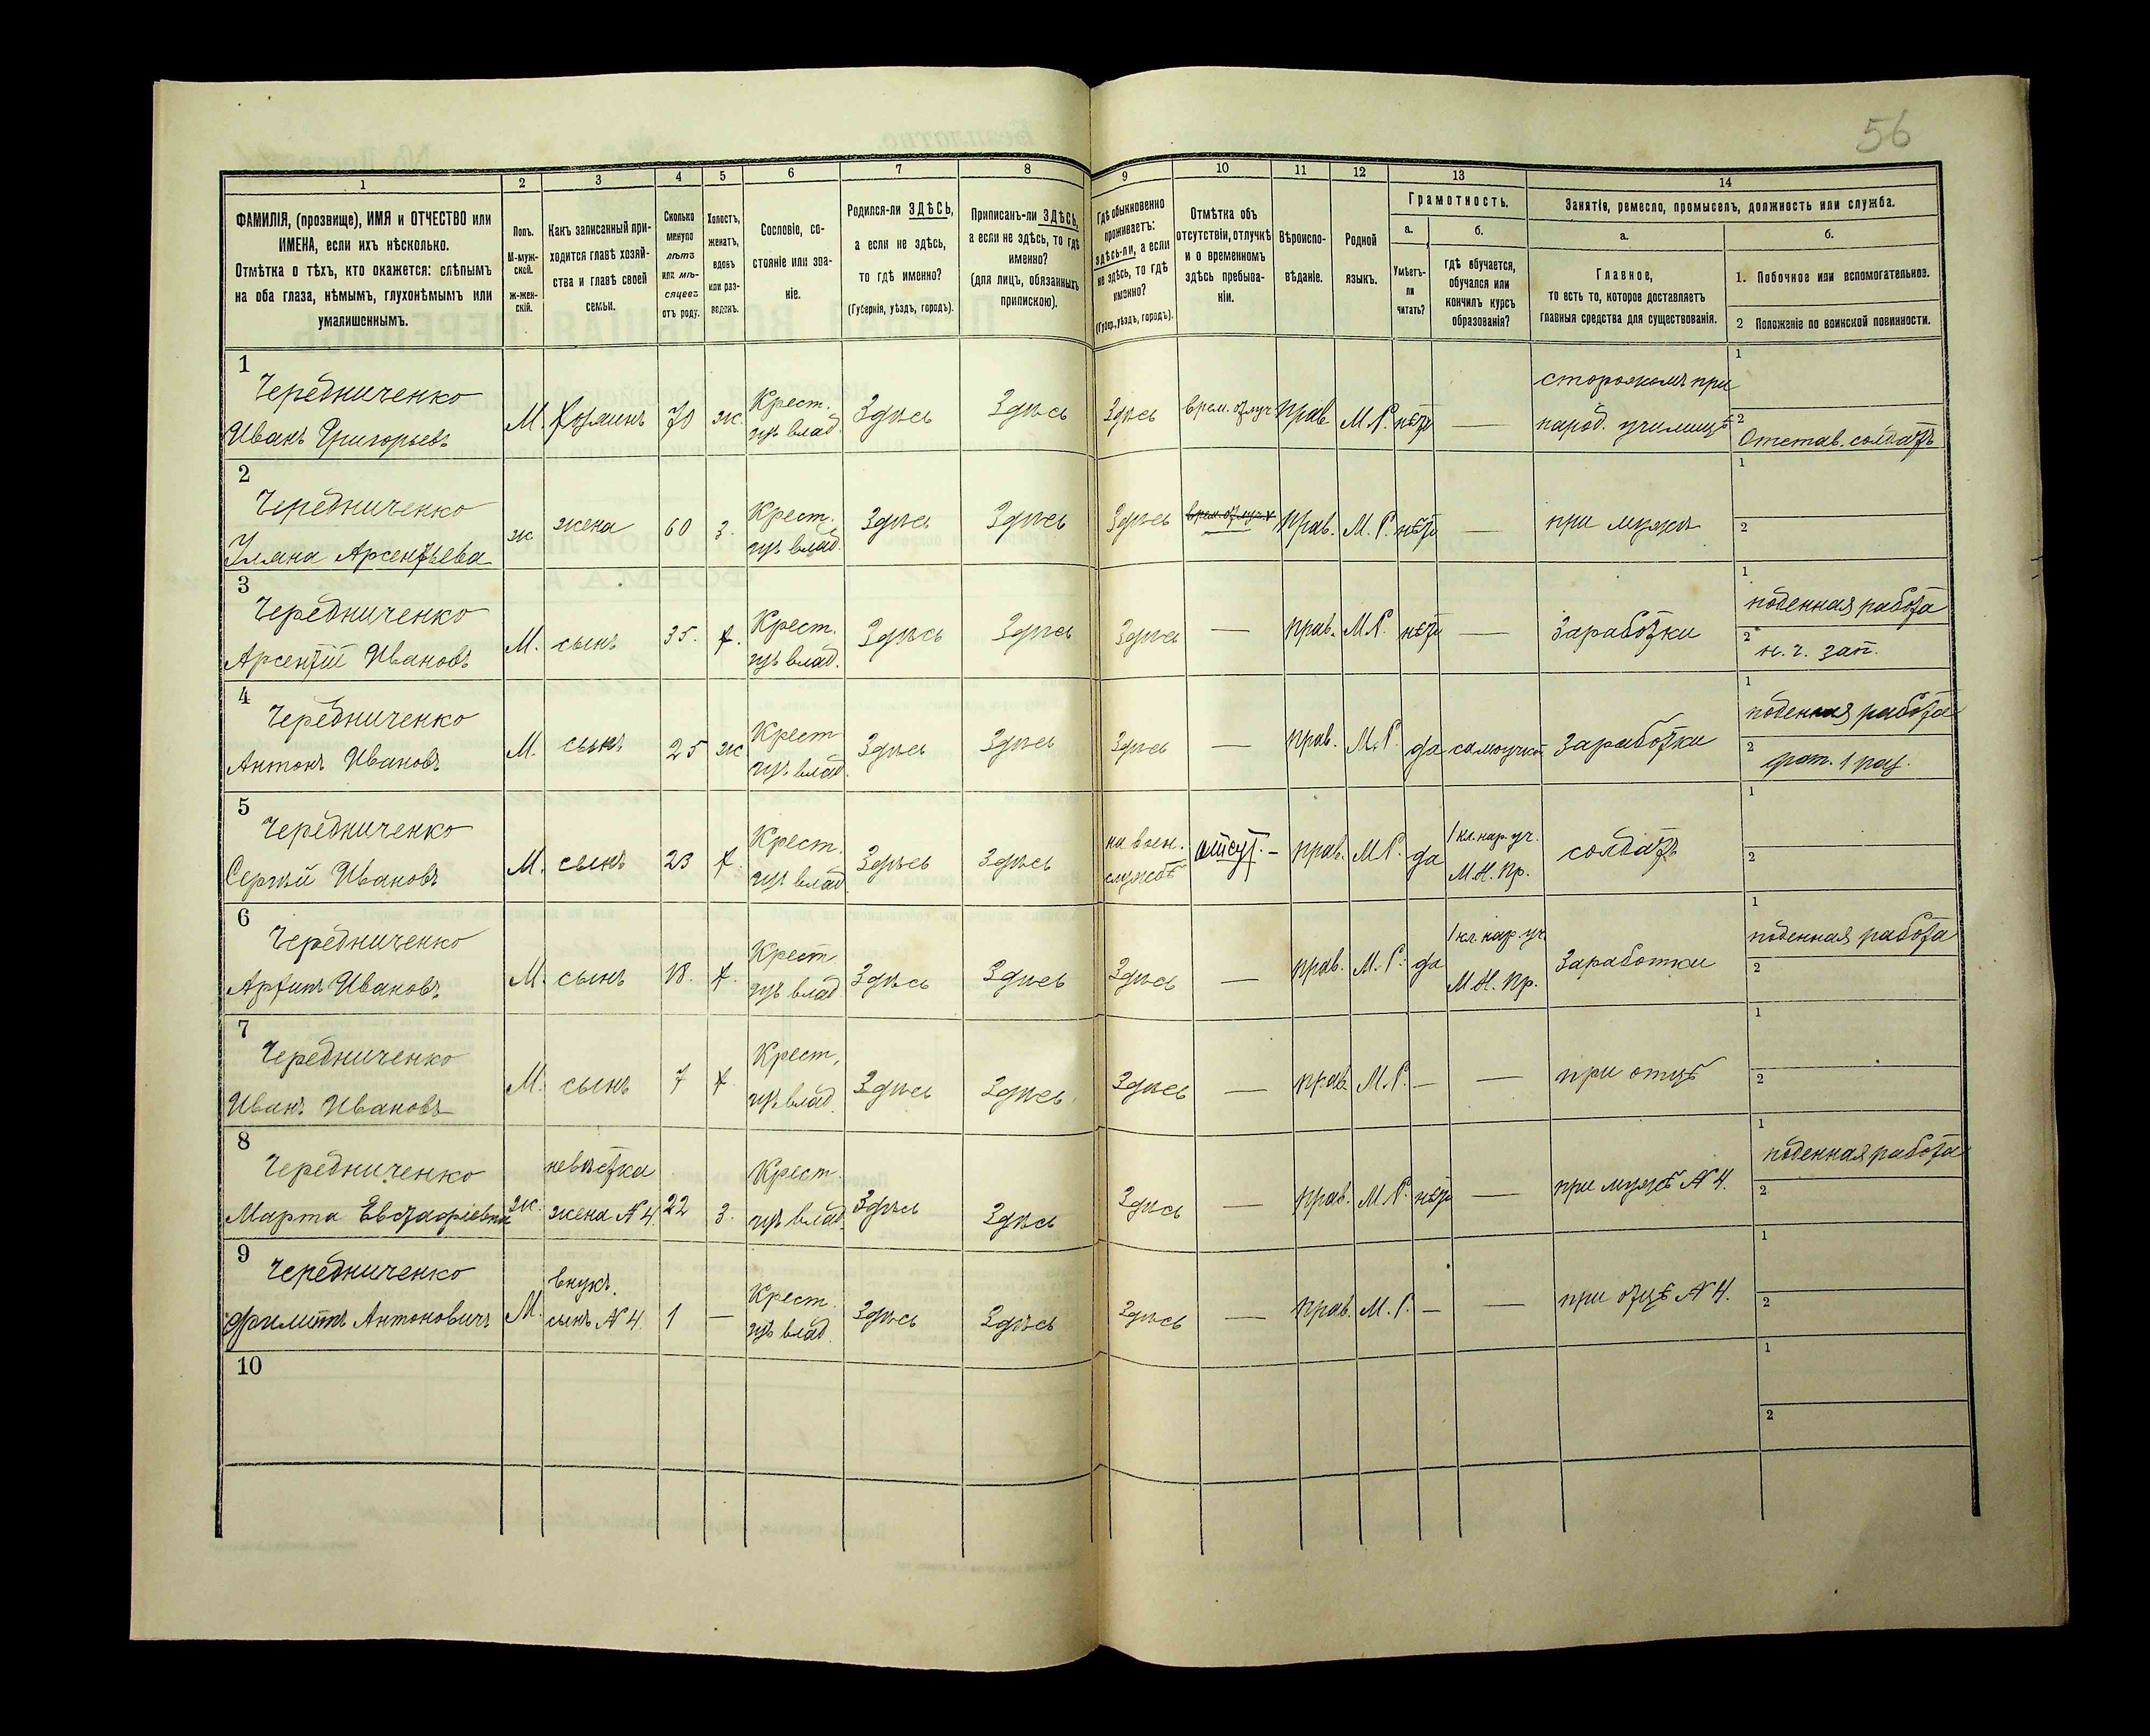 56
1 2 3 4 5 6 7 8 9 10 11 12 13 14
ФАМИЛІЯ, (прозвище), ИМЯ и ОТЧЕСТВО или
ИМЕНА, если ихъ нѣсколько.
Отмѣтка о тѣхъ, кто окажется: слѣпымъ
на оба глаза, нѣмымъ, глухонѣмымъ или
умалишеннымъ.
Полъ.
М-муж-
ской.
ж-жен-
скій.
Какъ записанный при-
ходится главѣ хозяй-
ства и главѣ своей
семьи.
Сколько
минуло
лѣтъ
или мѣ-
сяцевъ
отъ роду.
Холостъ,
женатъ,
вдовъ
или раз-
веденъ.
Сословіе, со-
стояніе или зва-
ніе.
Родился-ли ЗДѢСЬ,
а если не здѣсь,
то гдѣ именно?
(Губернія, уѣздъ, городъ).
Приписанъ-ли ЗДѢСЬ,
а если не здѣсь, то гдѣ
именно?
(для лицъ, обязанныхъ
припискою).
Гдѣ обыкновенно
проживаетъ:
здѣсь-ли, а если
не здѣсь, то гдѣ
именно?
(Губер., уѣздъ, городъ).
Отмѣтка объ
отсутствіи, отлучкѣ
и о временномъ
здѣсь пребыва-
ніи.
Вѣроиспо-
вѣданіе.
Родной
языкъ.
Грамотность.
а.
Умѣетъ-
ли
читать?
б.
Гдѣ обучается,
обучался или
кончилъ курсъ
образованія?
Занятіе, ремесло, промыселъ, должность или служба.
а.
Главное,
то есть то, которое доставляетъ
главныя средства для существованія.
б.
1. Побочное или вспомогательное.
2 Положеніе по воинской повинности.
1
Чередниченко
Иванъ Григорьевъ
М. Хозяинъ 70 ж. Крест.
изъ влад. Здѣсь Здѣсь Здѣсь врем. отлуч. прав. М.Р. нѣтъ —
сторожемъ при
народ. училищѣ
1
2
Отстав. солдатъ
2
Чередниченко
Ульяна Арсентьева
ж жена 60 з. Крест.
изъ влад. Здѣсь Здѣсь Здѣсь врем. отлуч. прав. М.Р. нѣтъ — при мужѣ
1
2
3
Чередниченко
Арсентій Ивановъ
М. сынъ 35. х. Крест.
изъ влад. Здѣсь Здѣсь Здѣсь — прав. М.Р. нѣтъ — Заработки
1
поденная работа
2
н. ч. зап.
4
Чередниченко
Антонъ Ивановъ
М. сынъ 25 ж. Крест
изъ влад. Здѣсь Здѣсь Здѣсь — прав. М.Р. да самоучка Заработки
1
поденная работа
2
рат. 1 раз.
5
Чередниченко
Сергѣй Ивановъ
М. сынъ 23 х. Крест.
изъ влад Здѣсь Здѣсь на воен.
службѣ отсут. – прав. М.Р. да 1 кл. нар. уч.
М.Н. Пр. солдатъ
1
2
6
Чередниченко
Ивановъ
М. сынъ 18. х. Крест
изъ влад. Здѣсь Здѣсь Здѣсь — прав. М.Р. да 1 кл. нар. уч.
М.Н. Пр. Заработки
1
поденная работа
2
7
Чередниченко
Иванъ Ивановъ
М. сынъ 7 х. Крест.
изъ влад. Здѣсь Здѣсь Здѣсь — прав М.Р. — — при отцѣ
1
2
8
Чередниченко
Марта Евстафіевна
ж. невѣстка
жена №4. 22 з. Крест
изъ влад. Здѣсь Здѣсь Здѣсь — прав. М.Р. нѣтъ — при мужѣ №4.
1
поденная работа
2
9
Чередниченко
Филиппъ Антоновичъ
М. внукъ.
сынъ №4. 1 — Крест.
изъ влад. Здѣсь Здѣсь Здѣсь — прав. М.Р. — — при отцѣ №4.
1
2
10
1
2